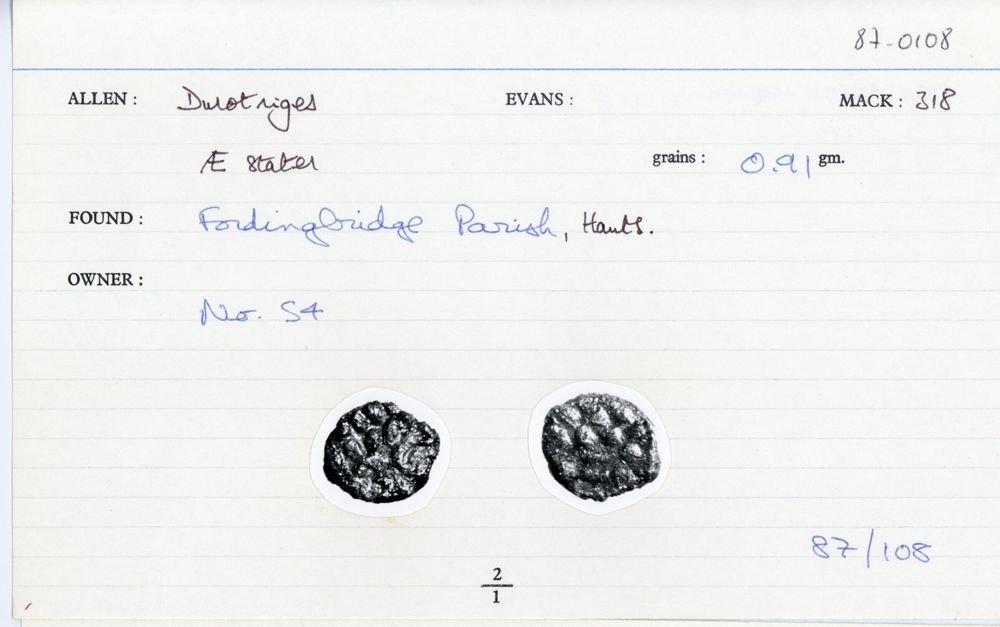 87-0108
ALLEN : Durotriges EVANS : MACK : 318
Æ stater grains : 0.91 gm.
FOUND : Fordingbridge Parish, Hants.
OWNER :
No. 54
87/108
2
1